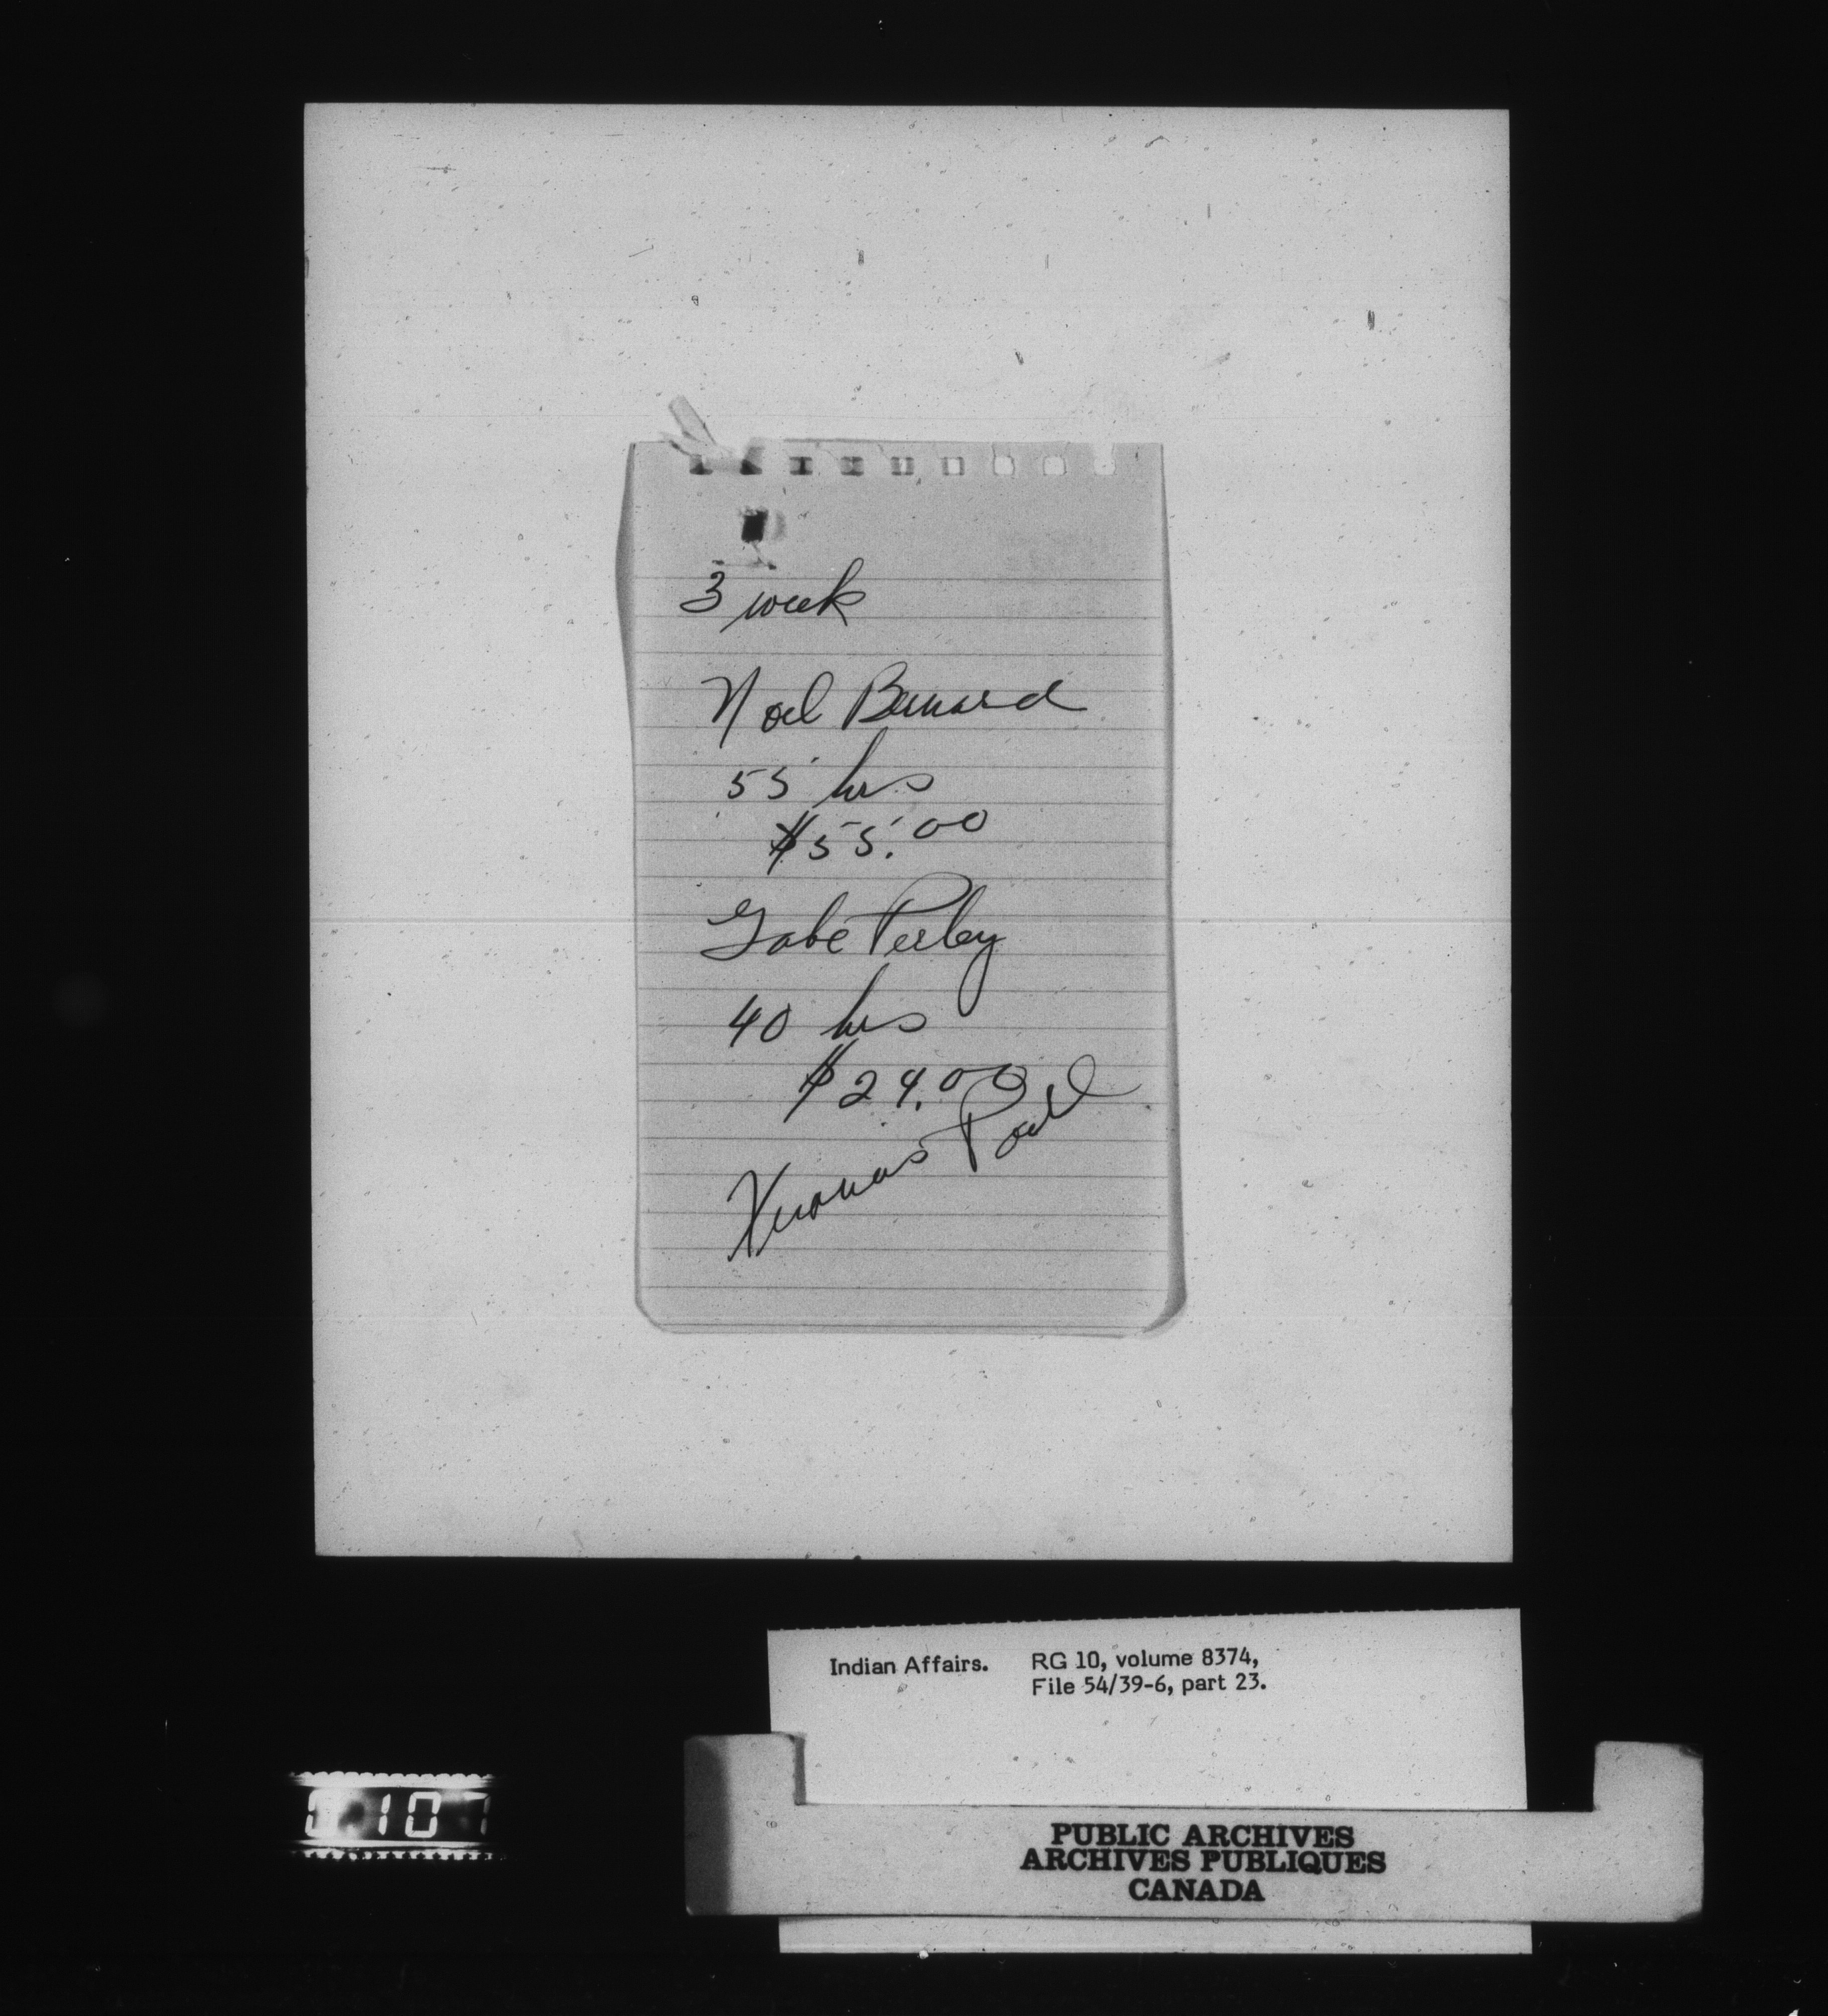 3 week
Noel Bernard
55 hrs
$55.00
Gabe Perley
40 hrs
$24.00
Paul
Indian Affairs. RG 10, volume 8374,
File 54/39-6, part 23.
PUBLIC ARCHIVES
ARCHIVES PUBLIQUES
CANADA